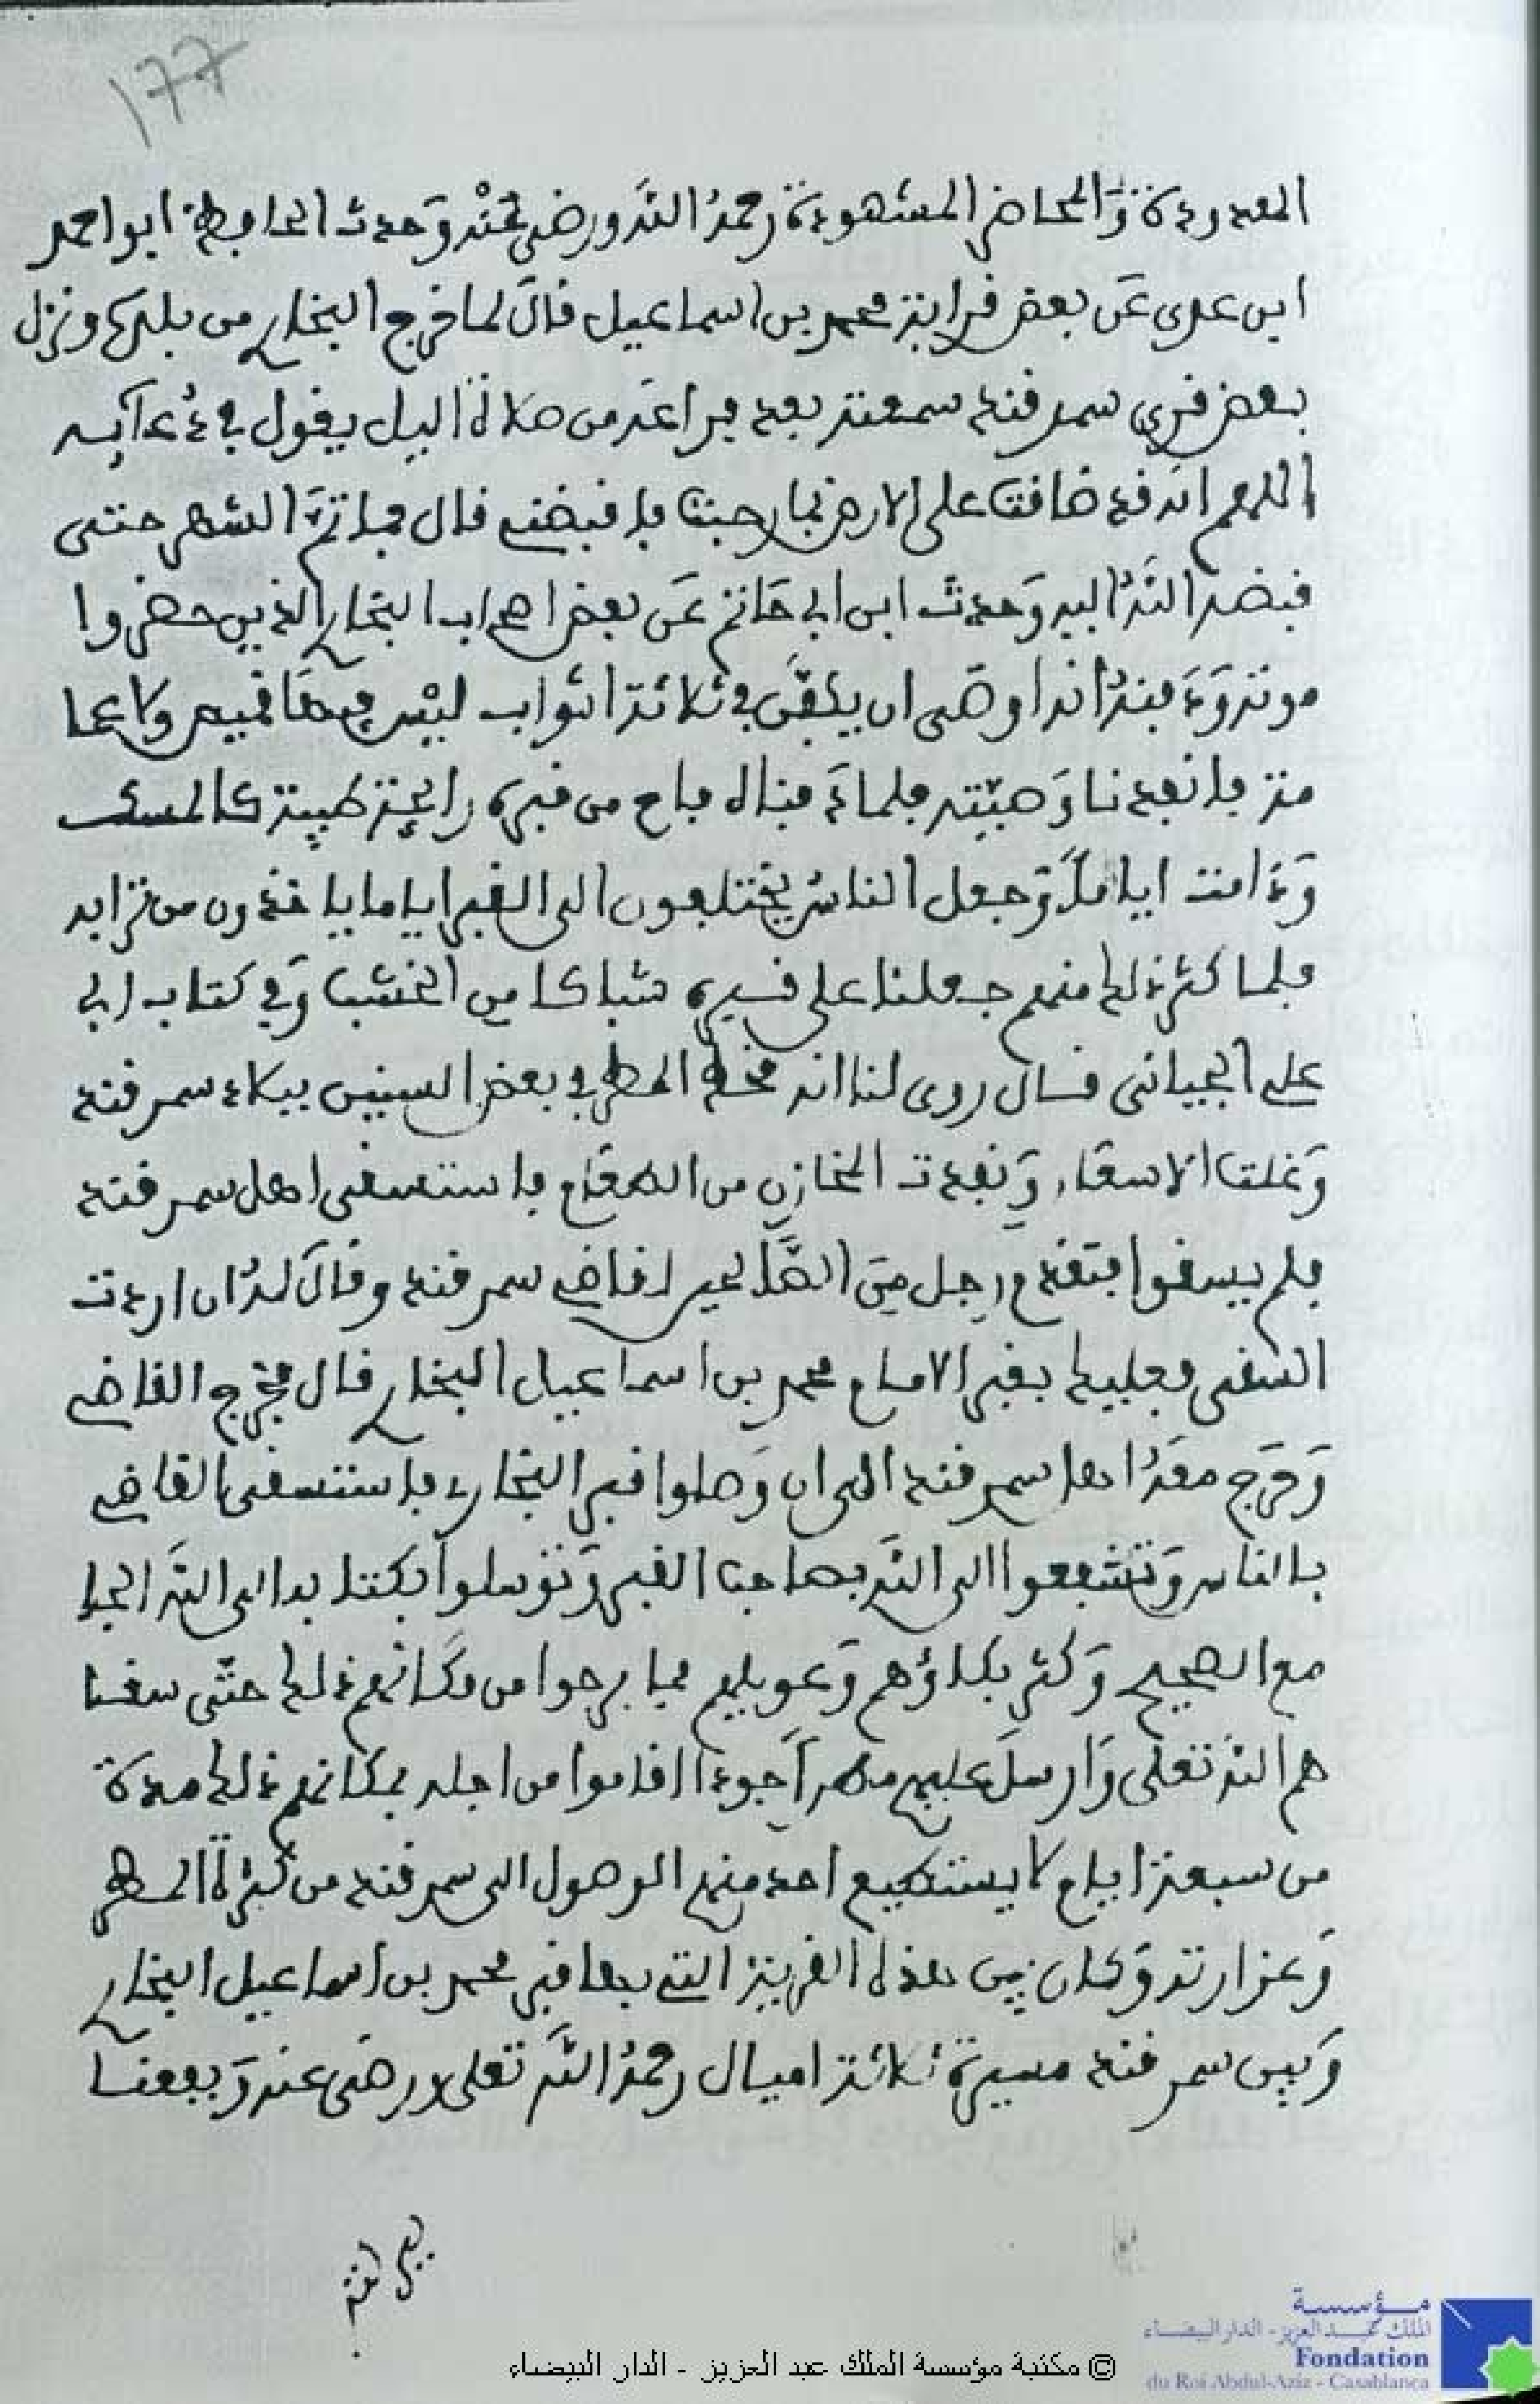 ١٧٧
المعدودة والمحاضر المشهودة رحمهُ الله ورضي عنْه وَحدث الحافظ ابو احمد
ابن عدي عَن بعض قرابة محمد بن اسماعيل قالَ لما خرج البخاري من بلدها ونزل
بعض قرى سمرقند سمعته بعد فراغه من صلاة اليل يقول في دُعآئِه
اللهم انه قد ضاقت علي الارض بما رحبت فاقبضني قال فما تمَّ الشهر حتى
قبضه اللهُ اليه وَحدث ابن ابي حَاتم عَن بعض اصحاب البخاري الذين حضروا
موته وَدفنهُ انه اوصَى ان يكفَّن في ثلاثة اثواب ليْس فيهَا قميص ولا عما
مة فانفدنا وَصيّته فلما دَفناه فاح من قبره رايحة طيبة كالمسك
وَدامت اياماً وَجعل الناسُ يختلفون الى القبر اياما ياخذون من ترابه
فلما كثر ذلك منهم جعلنا على قبره شباكا من الخشب وَفي كتاب ابي
علي الجياني قال روى لنا انه قحط المطر في بعض السنين ببلاد سمرقند
وَغلت الاسعَار وَنفدت المخازن من الطعَام فاستسقى اهل سمرقند
فلم يسقوا فتقدم رجل مِن الصَّالحين لقاضي سمرقند وقالَ لهُ ان اردت
السقى فعليك بقبر الامام محمد بن اسماعيل البخاري قال فخرج القاضي
وَخرَج معَهُ اهل سمرقند الى ان وَصلوا قبر البخاري فاستسقى القاضي
بالناس وَتشفعوا الى الله بصاحب القبر وَتوسلوا بكتابه الى اللهَ الجا
مع الصحيح وَكثر بكاؤهم وَعويلهم فما برحوا من مكَانهم ذلك حتّى سقا
هم اللهَ تعلى وَارسلَ عليهم مطراَ جودا اقاموا من اجله بمكانهم ذلك مدة
من سبعة ايام لا يستطيع احد منهم الوصول الى سمرقند من كثرة المطر
وَغزارته وَكان بين هذه القرية التي بها قبر محمد بن اسماعيل البخاري
وَبين سمرقند مسيرة ثلاثة اميال رحمهُ اللهَ تعلى ورضى عنه وَنفعنا
© مكتبة مؤسسة الملك عبد العزيز - الدار البيضاء
مؤسسة
الملك عبد العزيز - الدار البيضاء
Fondation
du Roi Abdul-Aziz - Casablanca